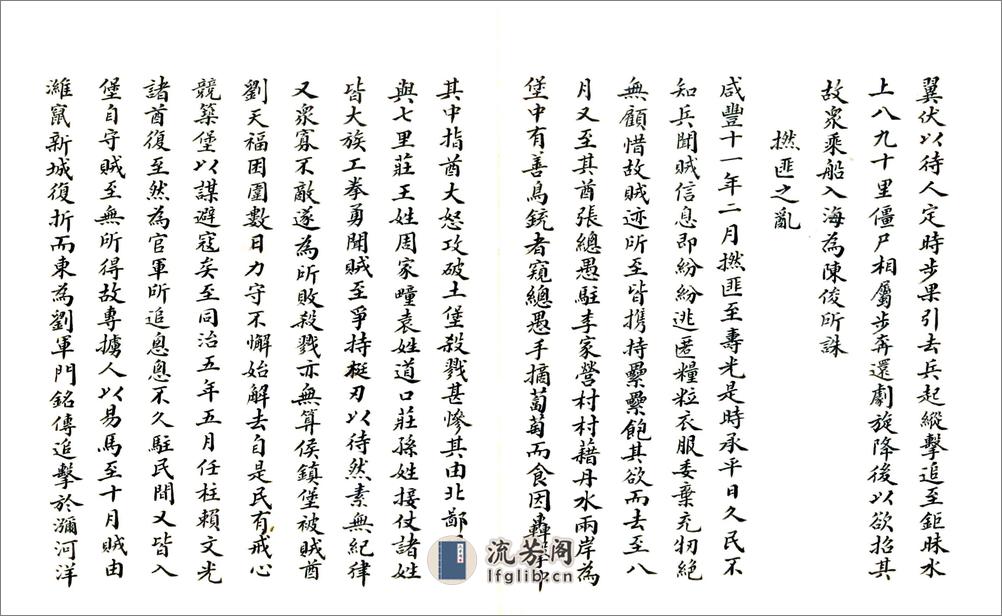 翼伏以待人定時步果引去兵起縱擊追至鉅昧水
上八九十里僵尸相屬步奔還劇旋降後以欲招其
故衆乘船入海為陳俊所誅
撚匪之亂
咸豐十一年二月撚匪至壽光是時承平日久民不
知兵聞賊信息即紛紛逃匿糧粒衣服委棄充牣絕
無顧惜故賊迹所至皆攜持纍纍飽其欲而去至八
月又至其酋張總愚駐李家營村村藉丹水兩岸為
堡中有善鳥銃者窺總愚手摘萄萄而食因轟擊中
其中指酋大怒攻破土堡殺戮甚慘其由北鄙
與七里莊王姓周家疃袁姓道口莊孫姓接仗諸姓
皆大族工拳勇聞賊至爭持梃刃以待然素無紀律
又衆寡不敵遂為所敗殺戮亦無算侯鎮堡被賊酋
劉天福困圍數日力守不懈始解去自是民有戒心
競築堡以謀避寇矣至同治五年五月任柱賴文光
諸酋復至然為官軍所追悤悤不久駐民間又皆入
堡自守賊至無所得故專擄人以易馬至十月賊由
濰竄新城復折而東為劉軍門銘傳追擊於瀰河洋
流芳阁
lfglib.cn